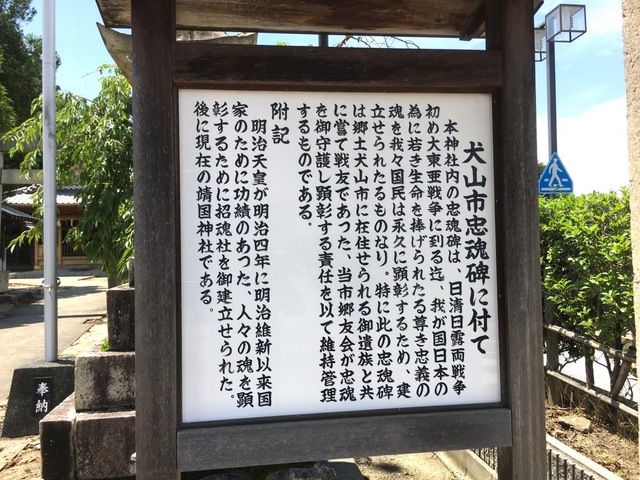 犬山市忠魂碑に付て
本神社内の忠魂碑は、日清日露両戦争
初め大東亜戦争に到る迄、我が国日本の
為に若き生命を捧げられたる尊き忠義の
魂を我々国民は永久に顕彰するため、建
立せられたるものなり。特に此の忠魂碑
は郷土犬山市に在住せられる御遺族と共
に嘗て戦友であった、当市郷友会が忠魂
を御守護し顕彰する責任を以て維持管理
するものである。
附記
明治天皇が明治四年に明治維新以来国
家のために功績のあった、人々の魂を顕
彰するために招魂社を御建立せられた。
後に現在の靖国神社である。
奉納